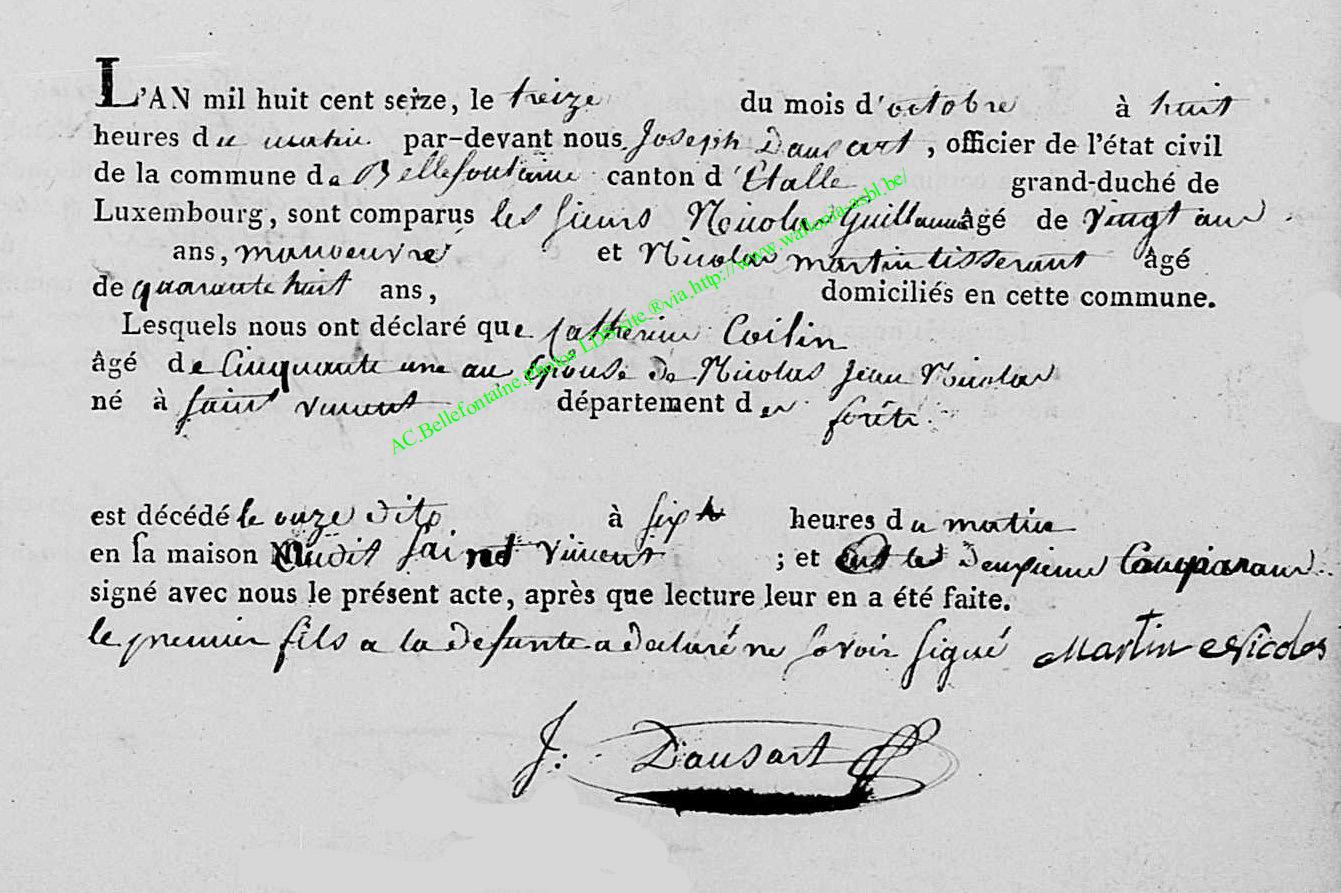 L'AN mil huit cent seize, le treize du mois d'octobre à huit
heures du matin par-devant nous Joseph Dausart, officier de l'état civil
de la commune de Bellefontaine canton d'Etalle grand-duché de
Luxembourg, sont comparus les sieurs Nicolas Guillaume âgé de vingt ans
ans, manoeuvre et Nicolas martin tisserant âgé
de quarante huit ans, domiciliés en cette commune.
Lesquels nous ont déclaré que Catherine Coilin
âgé de Cinquante une an Epouse de Nicolas Jean Nicolas
né à saint vincent département des forêts
est décédé le onze dito à six heures du matin
en sa maison audit saint vincent ; et ont les Deuxieme Comparant
signé avec nous le présent acte, après que lecture leur en a été faite.
le premier fils a la défunte a déclaré ne savoir signé Martin Nicolas
J: Dausart
AC.Bellefontaine.Photos LDS.site.®via.http://www.wallonia-asbl.be/